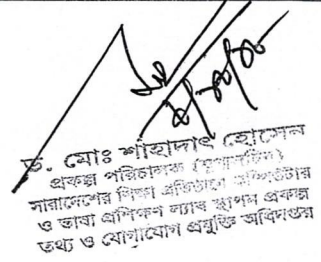 ড. মোঃ শাহাদাৎ হোসেন
প্রকল্প পরিচালক (যুগ্মসচিব)
সারাদেশের শিক্ষা প্রতিষ্ঠানে কম্পিউটার
ও ভাষা প্রশিক্ষণ ল্যাব স্থাপন প্রকল্প
তথ্য ও যোগাযোগ প্রযুক্তি অধিদপ্তর